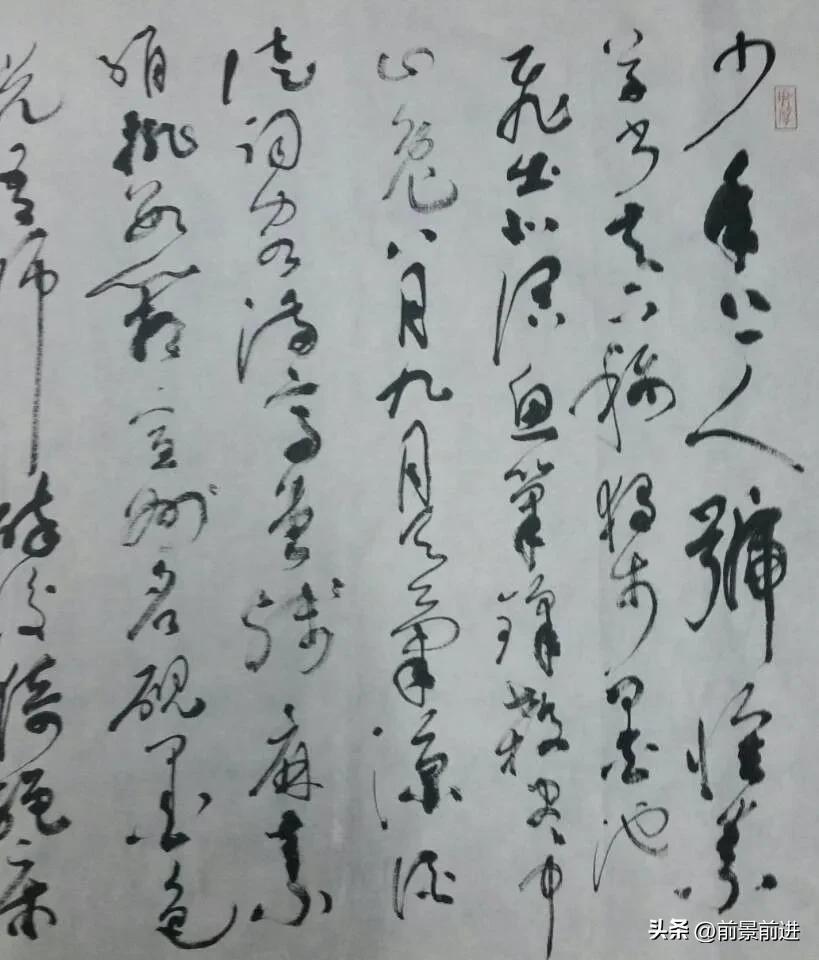 少年上人號懷素
草書天下稱獨步墨池
飛出北溟魚筆鋒殺盡中
山兔八月九月天氣涼酒
徒詞客滿高堂牋麻素
絹排數箱宣州石硯墨色
光吾師醉後倚繩床
头条 @前景前进